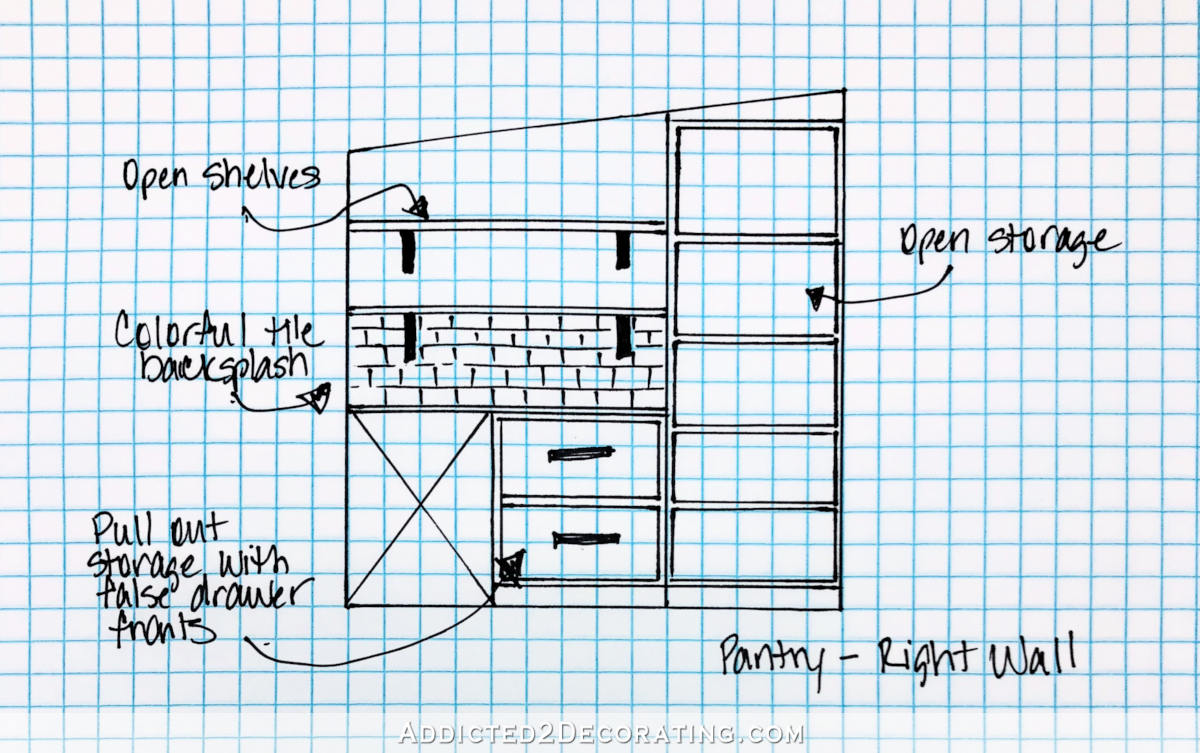 Open Shelves
Open Storage
Colorful tile
backsplash
Pull out
storage with
false drawer
fronts
Pantry - Right Wall
Addicted2Decorating.com